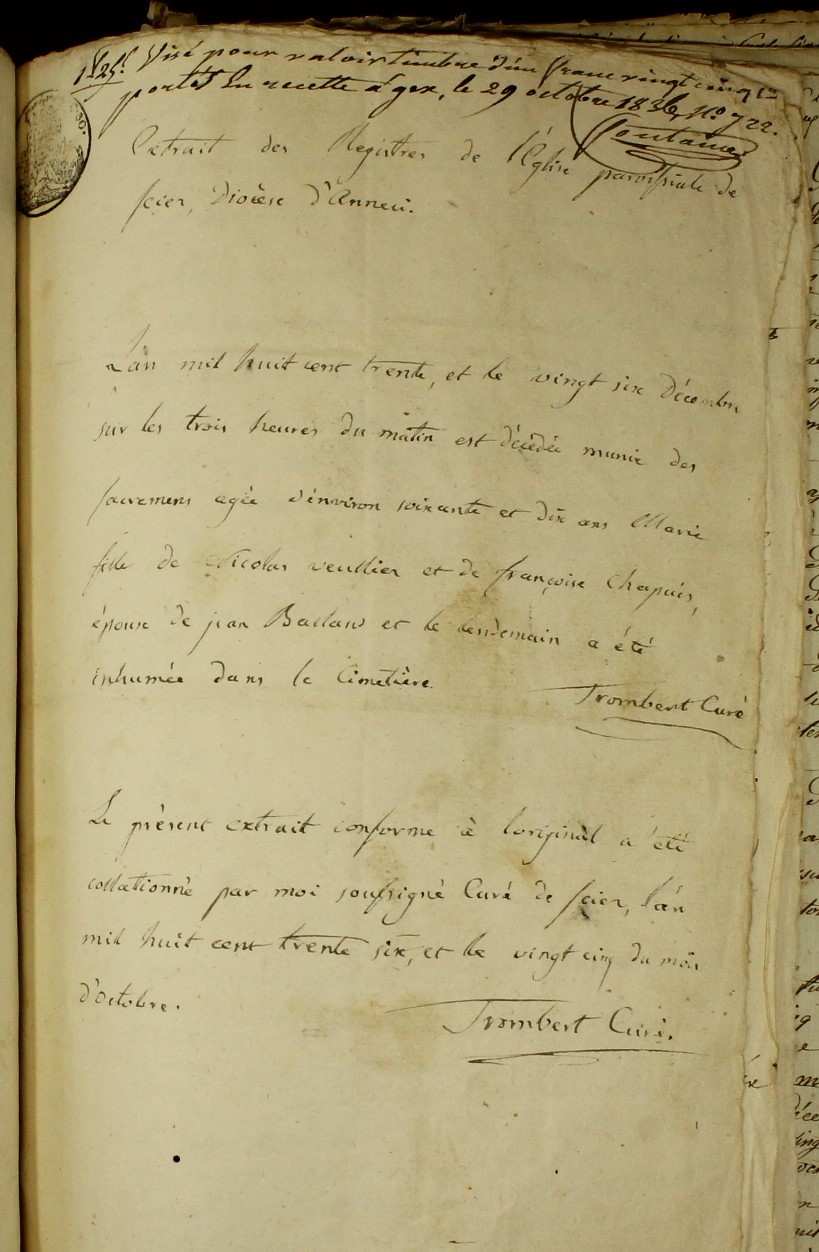 1f 25c Visé pour valoir timbre d'un franc vingt cinq c.
porté En recette à gex, le 29 octobre 1836, N.o 722.
Fontaine
Extrait des Registres de l'Eglise paroissiale de
scier, Diocèse d'Anneci.
L'an mil huit cent trente, et le vingt six Décembre
sur les trois heures du matin est décédée munie des
sacremens agée d'environ soixante et dix ans Marie
fille de Nicolas veullier et de françoise Chapuis,
épouse de jean Balland et le lendemain a été
inhumée dans le Cimetière.
Trombert Curé
Le prèsent extrait conforme à l'original a été
collationné par moi soussigné Curé de scier, l'an
mil huit cent trente six, et le vingt cinq du mois
d'Octobre.
Trombert Curé.